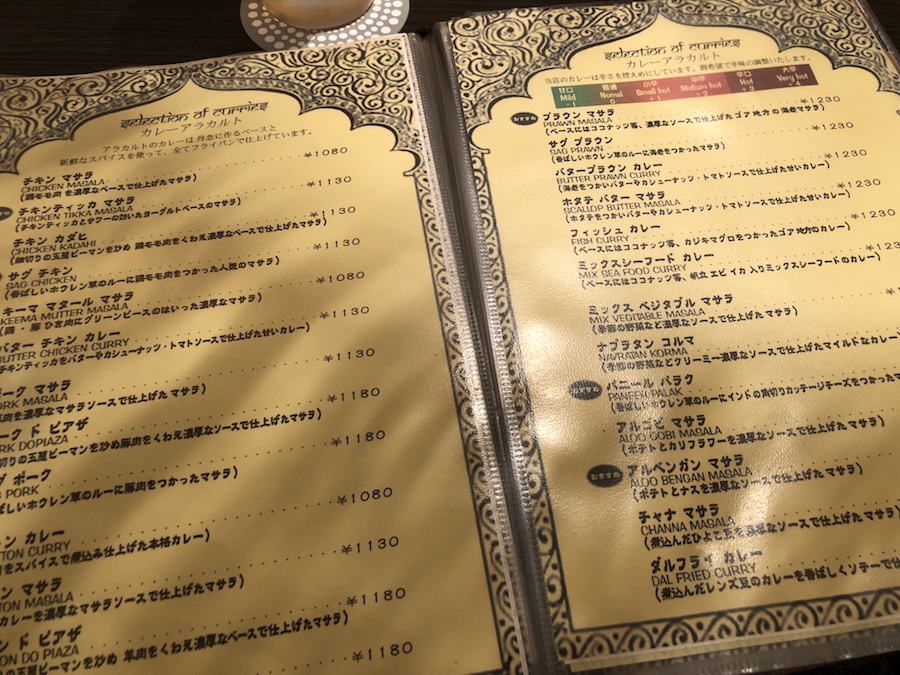 selection of curries
カレーアラカルト
アラカルトのカレーは丹念に作るベースと
新鮮なスパイスを使って、全てフライパンで仕上げています。
チキン マサラ ¥1080
CHICKEN MASALA
(鶏モモ肉 を濃厚なベースで仕上げたマサラ)
チキンティッカ マサラ ¥1130
CHICKEN TIKKA MASALA
(チキンティッカとサワーの効いたヨーグルトベースのマサラ)
チキン カダヒ ¥1130
CHICKEN KADAHI
(細切りの玉葱ピーマンを炒め 鶏モモ肉をくわえ濃厚なベースで仕上げたマサラ)
サグ チキン ¥1130
SAG CHICKEN
(香ばしいホウレン草のルーに鶏モモ肉をつかった人気のマサラ)
キーマ マタール マサラ ¥1080
KEEMA MUTTER MASALA
(鶏・豚 ひき肉にグリーンピースのはいった濃厚なマサラ)
バター チキン カレー ¥1130
BUTTER CHICKEN CURRY
チキンティッカをバターやカシューナッツ・トマトソースで仕上げた甘いカレー)
ポーク マサラ ¥1130
PORK MASALA
豚肉を濃厚なマサラソースで仕上げたマサラ)
ーク ド ピアザ ¥1180
RK DOPIAZA
切りの玉葱ピーマンを炒め豚肉をくわえ濃厚なソースで仕上げたマサラ)
グ ポーク ¥1180
PORK
ばしいホウレン草のルーに豚肉をつかったマサラ)
ン カレー ¥1080
TON CURRY
をスパイスで煮込み仕上げた本格カレー)
ン マサラ ¥1130
TON MASALA
カレーを濃厚なマサラソースで仕上げたマサラ)
ン ド ピアザ ¥1180
ON DO PIAZA
玉葱ピーマンを炒め 羊肉をくわえ濃厚なベースで仕上げたマサラ)
¥1180
selection of curries
カレーアラカルト
当店のカレーは辛さを控えめにしています。御希望で辛味の調整いたします。
甘口 普通 小辛 中辛 辛口 大辛
Mild Nomal Small hot Midium hot Hot Very hot
-1 0 +1 +2 +3 +4
おすすめ
プラウン マサラ ¥1230
PRAWN MASALA
(ベースにはココナッツ等、濃厚なソースで仕上げたゴア地方の海老マサラ)
サグ プラウン ¥1230
SAG PRAWN
(香ばしいホウレン草のルーに海老をつかったマサラ)
バタープラウン カレー ¥1230
BUTTER PRAWN CURRY
(海老をつかいバターやカシューナッツ・トマトソースで仕上げた甘いカレー)
ホタテ バター マサラ ¥1230
SCALLOP BUTTER MASALA
(ホタテをつかいバターやカシューナッツ・トマトソースで仕上げた甘いカレー)
フィッシュ カレー ¥1230
FISH CURRY
(ベースにはココナッツ等、カジキマグロをつかったゴア地方のカレー)
ミックスシーフード カレー
MIX SEA FOOD CURRY
(ベースにはココナッツ等、帆立 エビ イカ 入りミックスシーフードのカレー)
ミックス ベジタブル マサラ
MIX VEGITABLE MASALA
(季節の野菜など濃厚なソースで仕上げたマサラ)
ナブラタン コルマ
NAVRATAN KORMA
(季節の野菜などクリーミー濃厚なソースで仕上げたマイルドなカレー)
パニール パラク
PANEER PALAK
(香ばしいホウレン草のルーにインドの角切りカッテージチーズをつかったマ
アルゴビ マサラ
ALOO GOBI MASALA
(ポテトとカリフラワーを濃厚なソースで仕上げたマサラ)
おすすめ
アルベンガン マサラ
ALOO BENGAN MASALA
(ポテトとナスを濃厚なソースで仕上げたマサラ)
チャナ マサラ
CHANNA MASALA
(煮込んだひよこ豆を濃厚なソースで仕上げたマサラ)
ダルフライ カレー
DAL FRIED CURRY
(煮込んだレンズ豆のカレーを香ばしくソテーで仕